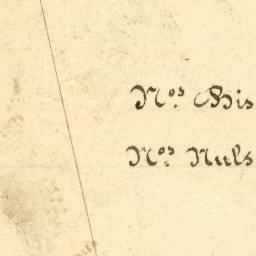 Nos. Bis
Nos. Nuls